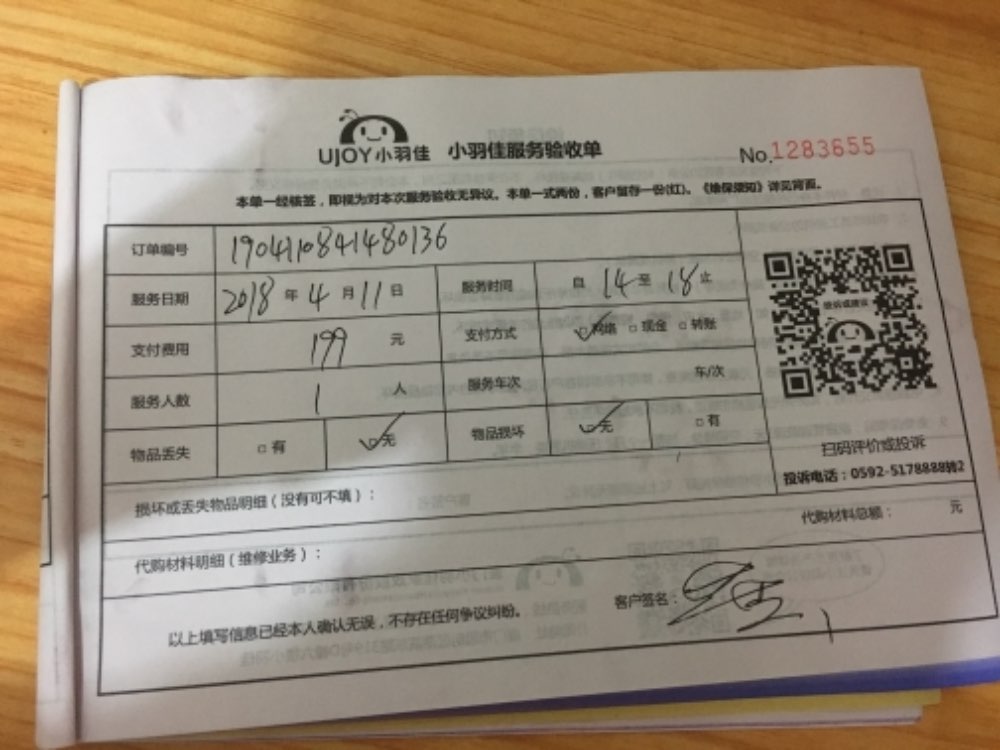 UJOY小羽佳 小羽佳服务验收单 No.1283655
本单一经核签，即视为对本次服务验收无异议。本单一式两份，客户留存一份(红)。《维保须知》详见背面。
订单编号 1904110841480136
服务日期 2018 年 4 月 11 日 服务时间 自 14 至 18 止
支付费用 199 元 支付方式 网络 □ 现金 □ 转账
服务人数 1 人 服务车次 车/次
物品丢失 □ 有 □ 无 物品损坏 □ 无 □ 有
扫码评价或投诉
投诉电话：0592-5178888转2
损坏或丢失物品明细（没有可不填）：
代购材料明细（维修业务）： 代购材料总额： 元
以上填写信息已经本人确认无误，不存在任何争议纠纷。 客户签名：